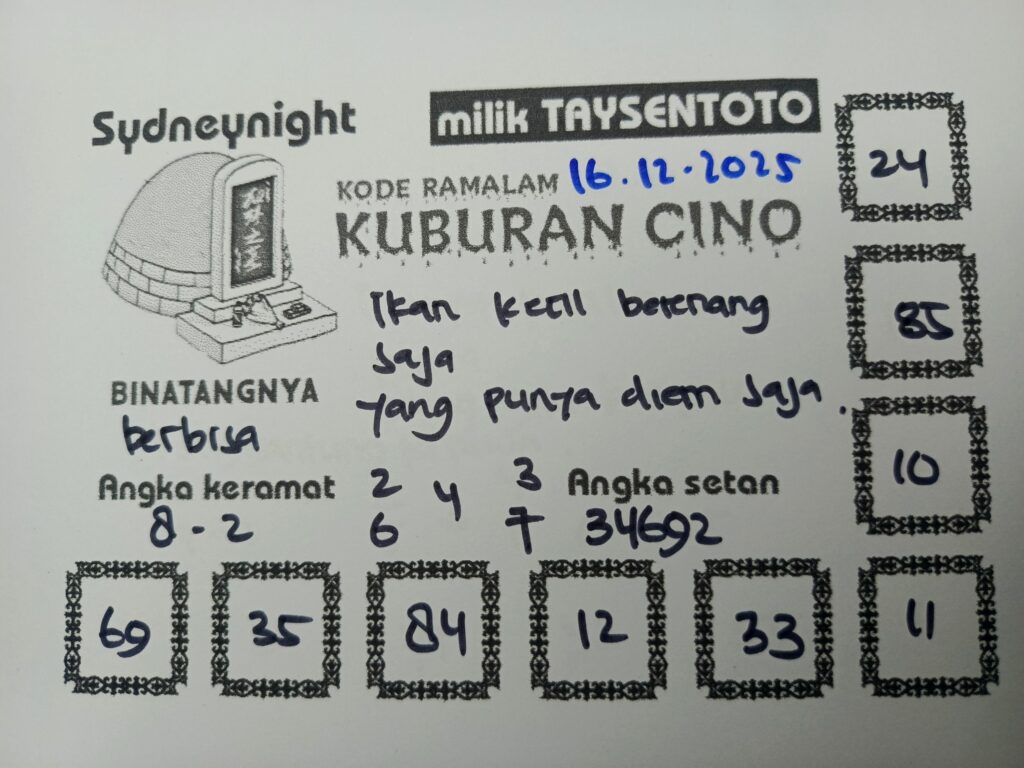 Sydneynight
milik TAYSENTOTO
KODE RAMALAM 16.12.2025
KUBURAN CINO
Ikan kecil berenang
saja
yang punya diem saja.
BINATANGNYA
berbisa
Angka keramat
8 - 2
2 4 3
6 7
Angka setan
34692
24
85
10
69 35 84 12 33 11